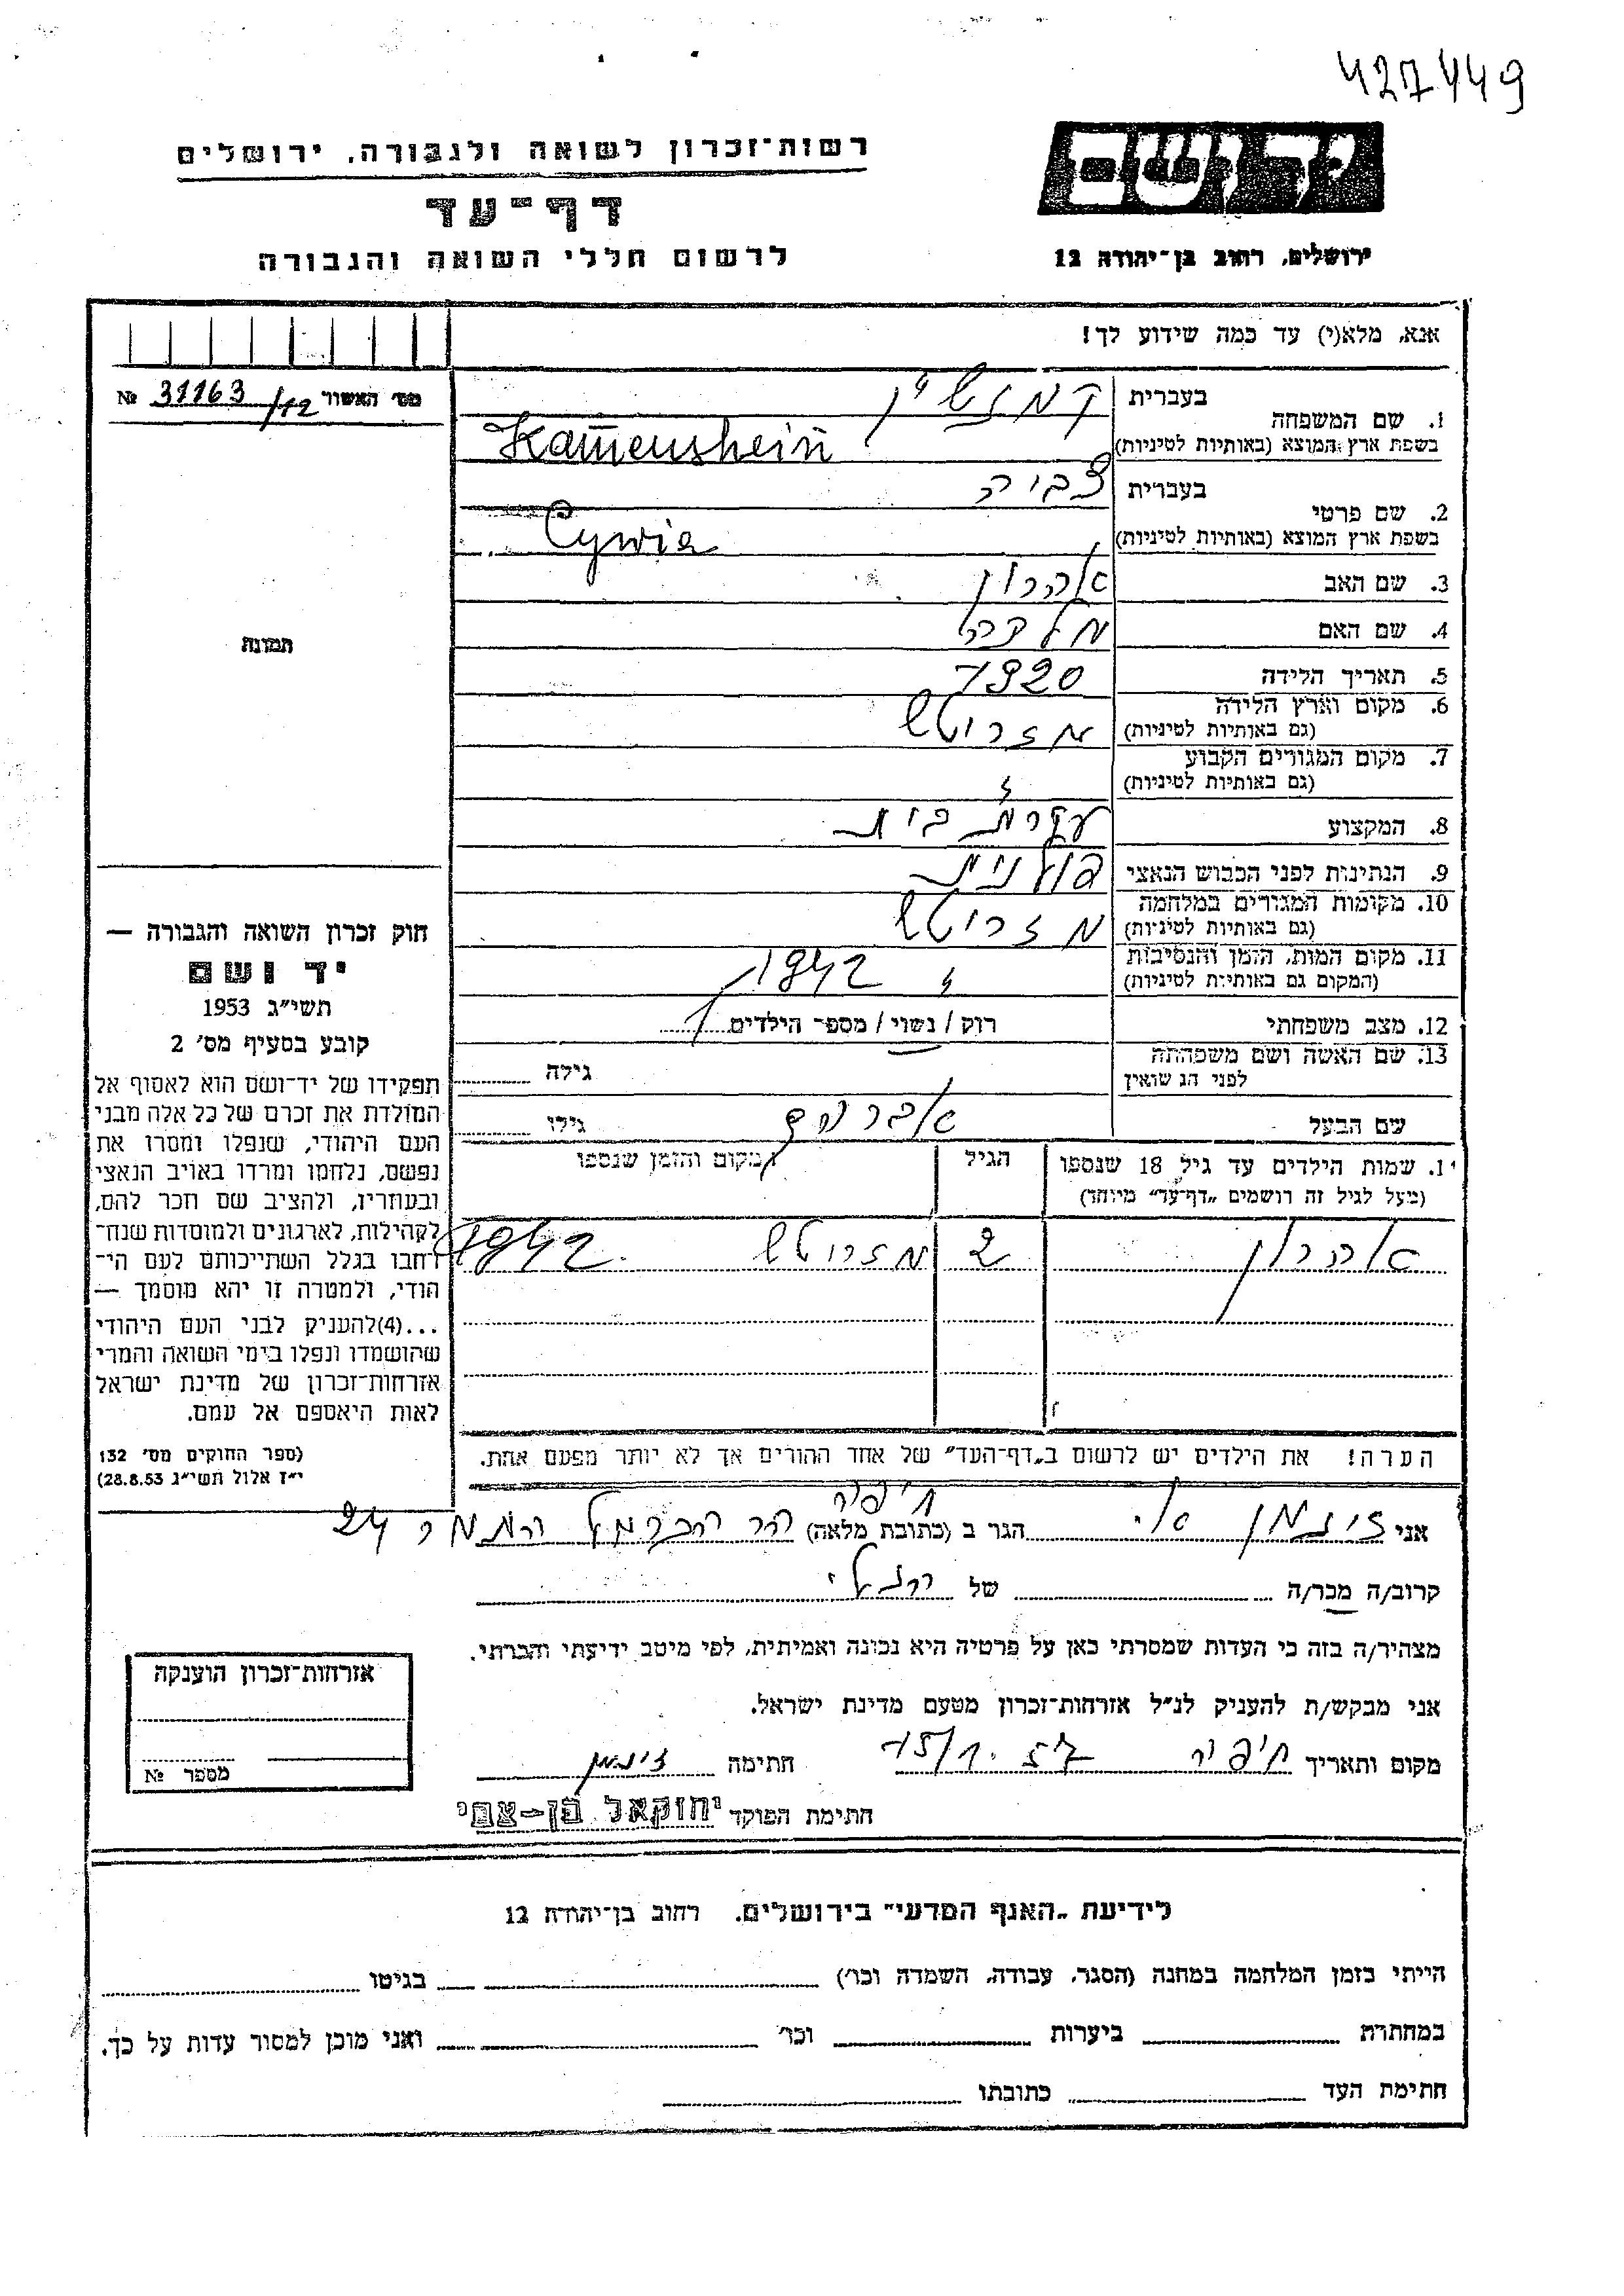 427449
רשות־זכרון לשואה ולגבורה, ירושלים
יד ושם
דף־עד
לרשום חללי השואה והגבורה
ירושלים, רחוב בן־יהודה 12
אנא, מלא(י) עד כמה שידוע לך!
מס׳ האשור 31163/12 №
1. שם המשפחה
בעברית
בשפת ארץ המוצא (באותיות לטיניות) Kamenshein
2. שם פרטי
בעברית צביה
בשפת ארץ המוצא (באותיות לטיניות) Cywia
3. שם האב אהרון
4. שם האם מלכה
5. תאריך הלידה 1920
6. מקום וארץ הלידה
(גם באותיות לטיניות) מזריטש
7. מקום המגורים הקבוע
(גם באותיות לטיניות)
8. המקצוע עקרת בית
9. הנתינות לפני הכבוש הנאצי פולנית
10. מקומות המגורים במלחמה
(גם באותיות לטיניות) מזריטש
11. מקום המות, הזמן והנסיבות
(המקום גם באותיות לטיניות) 1942
12. מצב משפחתי רוק / נשוי / מספר הילדים 1
13. שם האשה ושם משפחתה
לפני הנישואין גילה
שם הבעל אברהם גילו
שמות הילדים עד גיל 18 שנספו
(מעל לגיל זה רושמים „דף־עד״ מיוחד)
הגיל
המקום והזמן שנספו
אהרון 2 מזריטש 1942
הערה! את הילדים יש לרשום ב„דף־העד״ של אחד ההורים אך לא יותר מפעם אחת.
תמונה
חוק זכרון השואה והגבורה —
יד ושם
תשי״ג 1953
קובע בסעיף מס׳ 2
תפקידו של יד־ושם הוא לאסוף אל
המולדת את זכרם של כל אלה מבני
העם היהודי, שנפלו ומסרו את
נפשם, נלחמו ומרדו באויב הנאצי
ובעוזריו, ולהציב שם וזכר להם,
לקהילות, לארגונים ולמוסדות שנח־
רבו בגלל השתייכותם לעם הי־
הודי, ולמטרה זו יהא מוסמך —
...(4)להעניק לבני העם היהודי
שהושמדו ונפלו בימי השואה והמרי
אזרחות־זכרון של מדינת ישראל
לאות היאספם אל עמם.
(ספר החוקים מס׳ 132
י״ז אלול תשי״ג 28.8.53)
חיפה
אני זיגמן הגר ב (כתובת מלאה) הר הכרמל 24
קרוב/ה מכר/ה של
מצהיר/ה בזה כי העדות שמסרתי כאן על פרטיה היא נכונה ואמיתית, לפי מיטב ידיעתי והכרתי.
אני מבקש/ת להעניק לנ״ל אזרחות־זכרון מטעם מדינת ישראל.
מקום ותאריך חיפה 15/1.57 חתימה זיגמן
חתימת הפוקד יחזקאל בן־צבי
אזרחות־זכרון הוענקה
מספר №
לידיעת „האגף המדעי״ בירושלים. רחוב בן־יהודה 12
הייתי בזמן המלחמה במחנה (הסגר, עבודה, השמדה וכו׳) בגיטו
במחתרת ביערות וכו׳ ואני מוכן למסור עדות על כך.
חתימת העד כתובתו